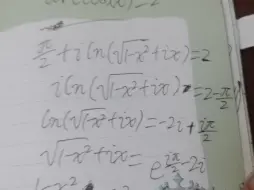 π/2 + i ln(√(1-x²)+ix) = 2
i ln(√(1-x²)+ix) = 2 - π/2
ln(√(1-x²)+ix) = -2i + iπ/2
√(1-x²)+ix = e^(iπ/2 - 2i)